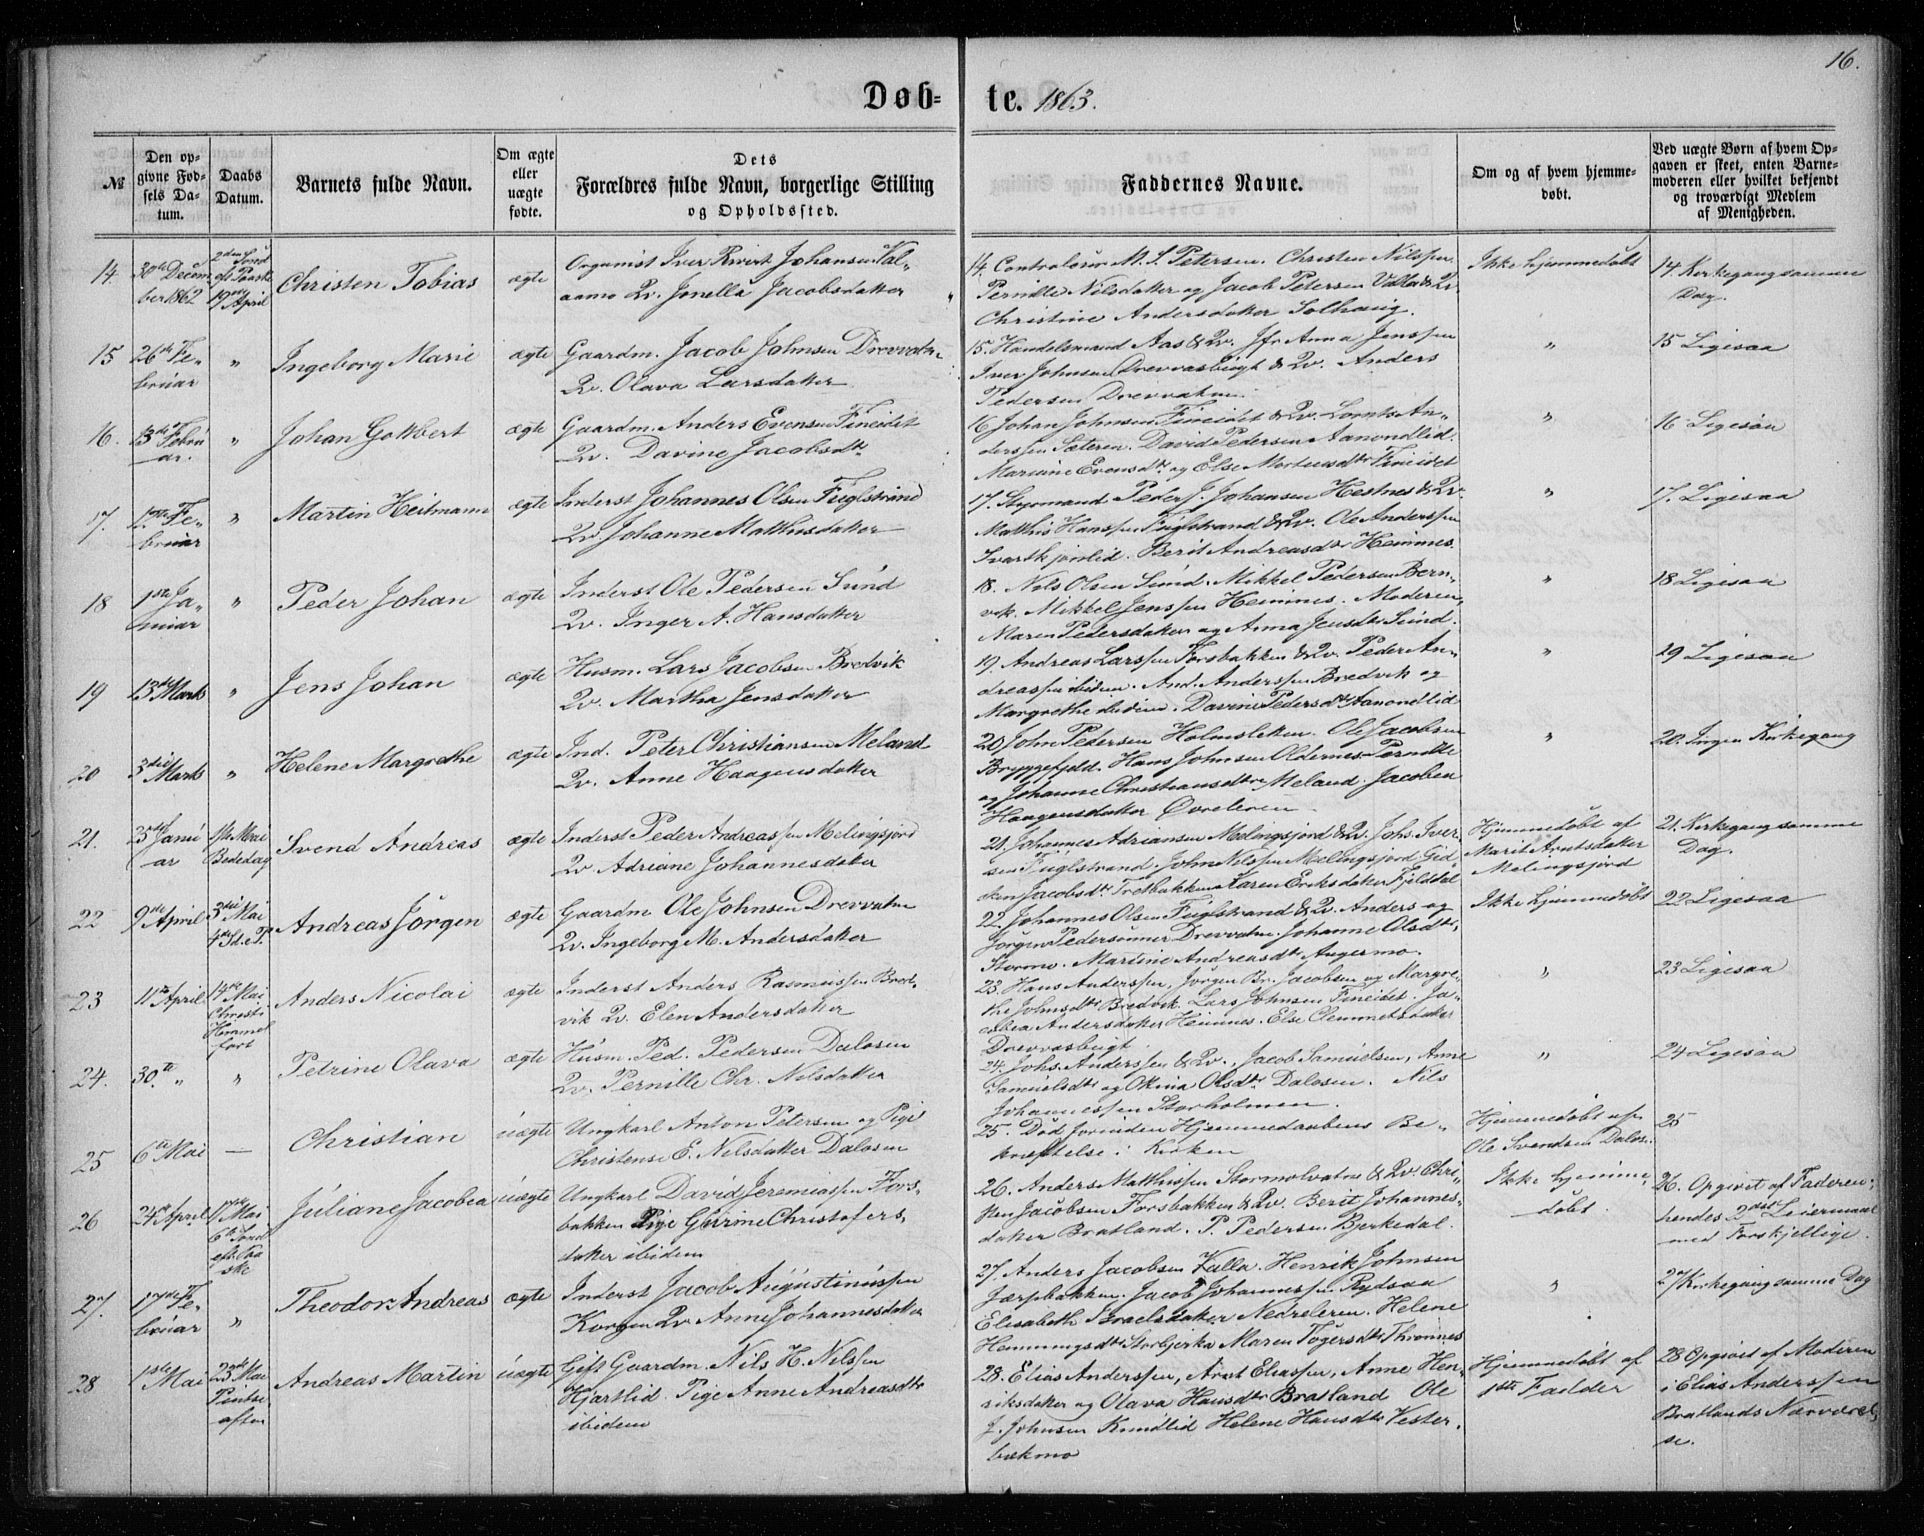 16.
Døb-
te. 1863.
№
Den op-
givne Fød-
sels Da-
tum.
Daabs
Datum.
Barnets fulde Navn.
Om ægte
eller
uægte
fødte.
Dets
Forældres fulde Navn, borgerlige Stilling
og Opholdssted.
Faddernes Navne.
Om og af hvem hjemme-
døbt.
Ved uægte Børn af hvem Op-
gaven er skeet, enten Barne-
moderen eller hvilket bekjendt
og troværdigt Medlem
af Menigheden.
14.
30te Decem
ber 1862
2den Sønd
eft. Paaske
19de April
Christen Tobias
ægte
Organist Iver Johansen Val-
aamo Qv. Jonella Jacobsdatter
14. Contralour M. S. Petersen. Christen Nilssen.
Pernille Nilsdatter og Jacob Petersen Valla & Qv.
Christine Andersdatter Solhaug.
Ikke hjemmedøbt
14 Kirkegang samme
Dag.
15
26de Fe-
bruar
"
Ingeborg Marie
ægte
Gaardm. Jacob Johnsen Drevvatn
Qv. Olava Larsdatter
15. Handelsmand Aas & Qv. Jfr Anna Jenssen
Iver Johnsen Drevvasbugt & Qv. Anders
Pedersen Drevvatn.
"
15 Ligesaa
16.
13de Febru
ar.
"
Johan Gotbert
ægte
Gaardm. Anders Evensen Fineidet
Qv. Davine Jacobsdtr
16 Johan Johnsen Fineidet & Qv. Lornts An-
derssen Sæteren. David Pedersen Aanondlid.
Mariane Evensdtr og Else Mortensdtr Fineidet
"
16 Ligesaa
17.
1ste Fe-
bruar
"
Martin Heitmann
ægte
Inderst Johannes Olsen Fuglstrand
Qv. Johanne Matthisdatter
17. Styrmand Peder J. Johansen Hestnes & Qv.
Matthis Hanssen Fuglstrand & Qv. Ole Anderssen
Svartkjønlid. Berit Andreasdtr Hemnes.
"
17. Ligesaa
18
1ste Ja-
nuar
"
Peder Johan
ægte
Inderst Ole Pedersen Sund
Qv. Inger A. Hansdatter
18. Nils Olsen Sund. Mikkel Pedersen Bern-
vik. Mikkel Jenssen Hemnes. Moderen,
Maren Pedersdatter og Anna Jensdtr Sund.
"
18 Ligesaa
19
13de Marts
"
Jens Johan
ægte
Husm. Lars Jacobsen Bredvik
Qv. Martha Jensdatter
19. Andreas Larssen Forsbakken & Qv. Peder An-
dreassen ibidem. And. Anderssen Bredvik og
Margrethe ibidem. Davine Pedersdtr Aanondlid
"
19 Ligesaa
20
3die Marts
"
Helene Margrethe
ægte
Ind. Peter Christiansen Meland
Qv. Anne Haagensdatter
20 John Pedersen Holmsleken. Ole Jacobsen
Bryggefjeld. Hans Johnsen Oldernes. Pernille
og Johanne Christiansdtr Meland. Jacobea
Haagensdatter Øvreleren
"
20. Ingen Kirkegang
21.
3die Janu
ar
1ste Mai
Bededag
Svend Andreas
ægte
Inderst Peder Andreassen Melingsfjord
Qv Adriane Johannesdatter
21. Johannes Adriansen Melingsfjord & Qv. Johs. Iver-
sen Fuglstrand. John Nilssen Melingsfjord. Gid-
sken Jacobsdtr Tretbakken. Karen Eriksdatter Fjeldtal
Hjemmedøbt af
Marit Arntsdatter
Melingsfjord
21. Kirkegang samme
Dag.
22
9de April
3die Mai
4de Sd. e. P.
Andreas Jørgen
ægte
Gaardm Ole Johnsen Drevvatn
Qv. Ingeborg M. Andersdatter
22. Johannes Olsen Fuglstrand & Qv. Anders og
Jørgen Pedersønner Drevvatn. Johanne Olsdtr,
Stormo. Martine Andreasdtr Angermo.
Ikke hjemmedøbt
22 Ligesaa
23
11te April
14de Mai
Christi
Himmel
fart
Anders Nicolai
ægte
Inderst Anders Rasmussen Bred-
vik Qv. Elen Andersdatter
23. Hans Anderssen, Jørgen Br. Jacobsen og Margre-
the Johnsdtr Bredvik. Lars Johnsen Fineidet. Ja-
cobea Andersdatter Hemnes. Else Clemmetsdatter
Drevvasbugt.
"
23 Ligesaa
24.
30.te "
"
Petrine Olava
ægte
Husm. Ped. Pedersen Dalosen
Qv. Pernille Chr. Nilsdatter
24. Johs. Anderssen & Qv., Jacob Samuelsen, Anne
Samuelsdtr og Okina Olsdtr Dalosen. Nils
Johannessen Storholmen.
"
24 Ligesaa
25
6te Mai
—
Christian
uægte
Ungkarl Anton Petersen og Pige
Christense E. Nilsdatter Dalosen
25. Død forinden Hjemmedaabens Be-
kræftelse i Kirken
Hjemmedøbt af
Ole Svendsen Dalos.
25
26
24de April
17de Mai
6te Sønd
eft. Paa
ske
Juliane Jacobea
uægte
Ungkarl David Jeremiassen Fors-
bakken Pige Gurine Christofers-
datter ibidem
26. Anders Matthissen Stormolvatn & Qv. Chri-
sten Jacobsen Forsbakken & Qv. Berit Johannes-
datter Bratland. P. Pedersen Bjerkedal.
Ikke hjemme-
døbt.
26. Opgivet af Faderen;
hendes 2det Leiermaal
med Forskjellige.
27.
17de Fe-
bruar
"
Theodor Andreas
ægte
Inderst Jacob Augustinussen
Korgen Qv Anne Johannesdatter
27. Anders Jacobsen Valla. Henrik Johnsen
Jærpbakken. Jacob Johannessen Rydsaa
Elisabeth Israelsdatter Nedreleren. Helene
Hemmingsdtr Storbjerka Maren Tøgersdtr Thronnes
"
27 Kirkegang samme Dag
28
1ste Mai
23de Mai
Pintse
aften
Andreas Martin
uægte
Gift Gaardm. Nils H. Nilssen
Hjartlid. Pige Anne Andreasdtr
ibidem
28. Elias Anderssen, Arnt Eliassen, Anne Hen-
riksdatter og Olava Hansdtr Bratland Ole
J. Johnsen Kundlid Helene Hansdtr Vester-
bækmo
Hjemmedøbt af
1ste Fadder
28 Opgivet af Moderen
i Elias Anderssen
Bratlands Nærværel-
se.